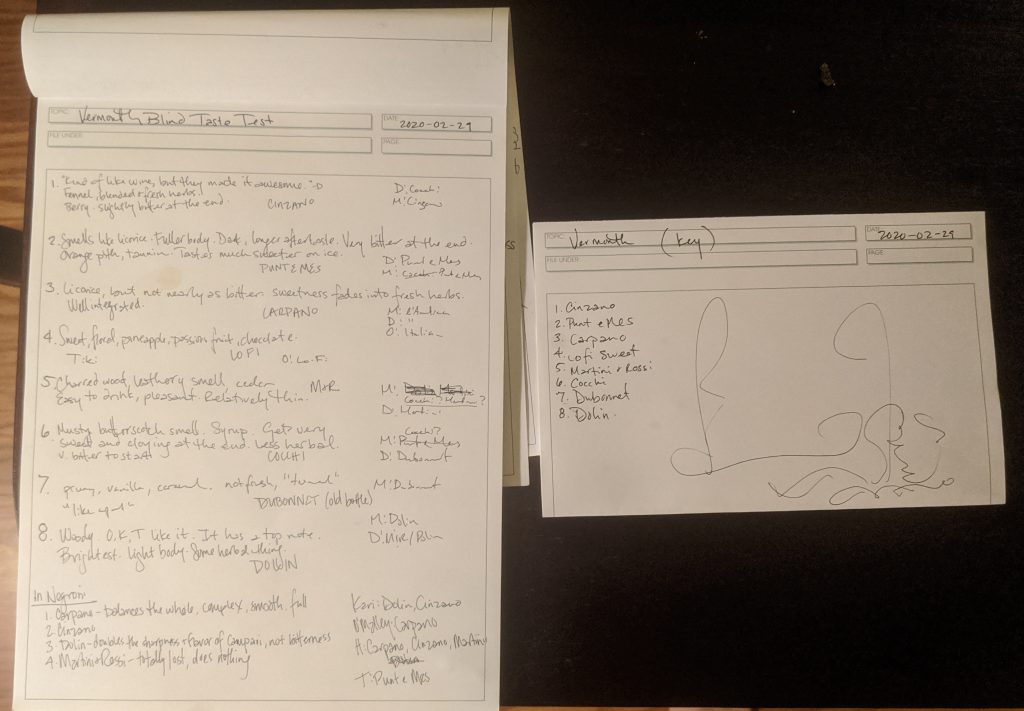 TOPIC: Vermouth Blind Taste Test
DATE: 2020-02-29
FILE UNDER:
PAGE:
1. "Kind of like wine, but they made it awesome." :D
D: Cocchi
Fennel, blended fresh herbs.
M: Cinzano
Berry. slightly bitter at the end. CINZANO
2. Smells like licorice. Fuller body. Dark, longer aftertaste. Very bitter at the end.
Orange pith, tannin. Tastes much sweeter on ice. D: Punt e Mes
PUNT E MES M: Punt e Mes
3. Licorice, but not nearly as bitter. sweetness fades into fresh herbs.
Well integrated. CARPANO M:
D: "
4. Sweet, floral, pineapple, passion fruit, chocolate. O:
Tiki LOFI O: Lo-Fi
5. Charred wood, leathery smell, cedar M&R M:
Easy to drink, pleasant. Relatively thin. Cocchi?
D: Martini
6. Musty butterscotch smell. Syrup. Gets very Cocchi?
sweet and cloying at the end. Less herbal. M: Punt e Mes
v. bitter to start COCCHI D: Dubonnet
7. vanilla, caramel. not fresh, M: Dubonnet
DUBONNET (old bottle)
M: Dolin
8. Woody. O.K, I like it. It has a top note. D: M&R/Dolin
Brightest. Light body. Some herbal thing.
DOLIN
In Negroni
1. Carpano - balances the whole, complex, smooth, full
Kari: Dolin, Cinzano
2. Cinzano
O'Malley: Carpano
3. Dolin - doubles the sharpness + flavor of campari, not bitterness
H: Carpano, Cinzano, Martini
4. Martini & Rossi - totally lost, does nothing
T: Punt e Mes
TOPIC: Vermouth (key)
DATE: 2020-02-29
FILE UNDER:
PAGE:
1. Cinzano
2. Punt e Mes
3. Carpano
4. Lofi Sweet
5. Martini & Rossi
6. Cocchi
7. Dubonnet
8. Dolin.